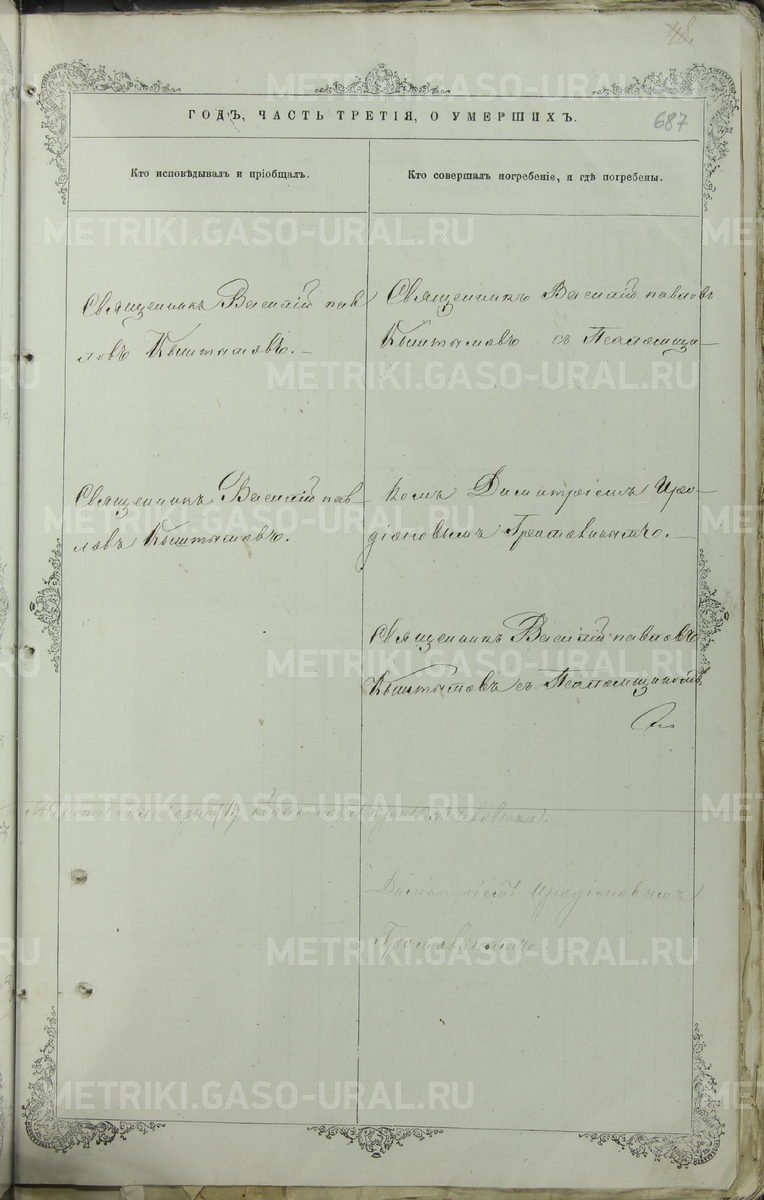 48.
ГОДЪ, ЧАСТЬ ТРЕТІЯ, О УМЕРШИХЪ.
687
Кто исповѣдывалъ и пріобщалъ.
Кто совершалъ погребеніе, и гдѣ погребены.
Священникъ Василій пав
ловъ Кыштымовъ.
Священникъ Василій павлов
ловъ Кыштымовъ.
Священникъ Василій павловъ
Кыштымовъ съ Псаломщи-
комъ Димитріемъ Иро-
діоновымъ
Священникъ Василій павловъ
Кыштымовъ съ Псаломщикомъ
Димитріемъ Иродіоновымъ
METRIKI.GASO-URAL.RU